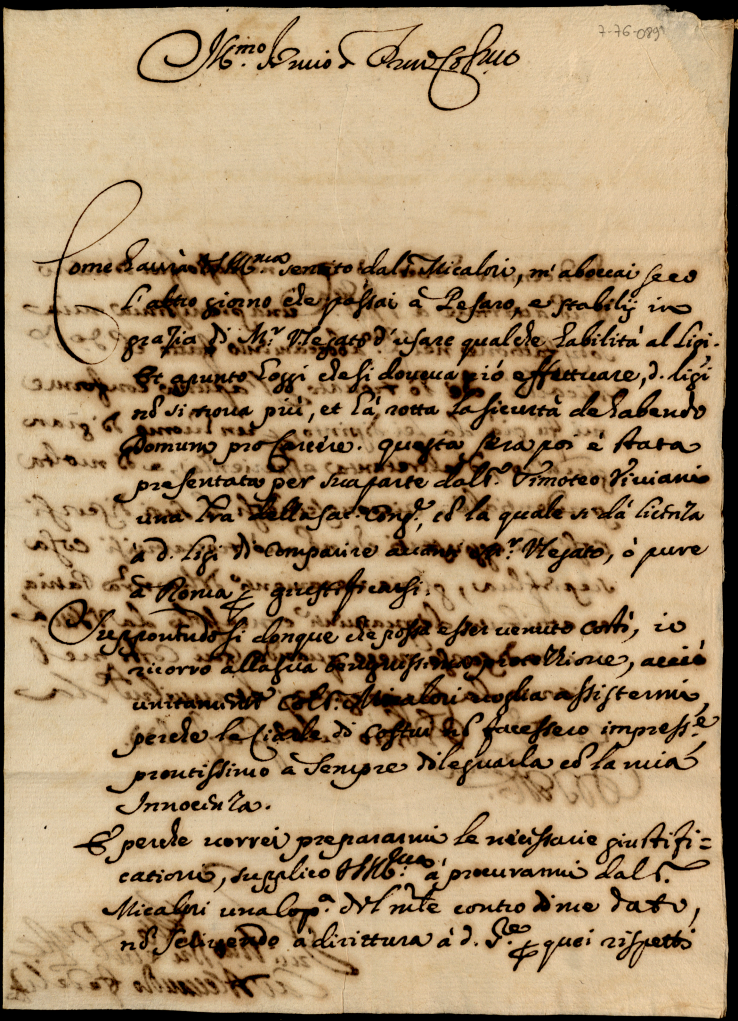 7-76-089
Ill.mo Sig.re mio e Pron Col.mo
Come havrà V.S.Ill.ma sentito dal S. Micalori, m'aboccai seco
l'altro giorno che passai à Pesaro, e stabilij in
grazia di M.r Vlegato d'usare qualche habilità al Ligi.
Et apunto hoggi che si doveva ciò effettuare, d. Ligi
nõ si trova più, et hà rotta la sicurtà de habendo
Domum pro Carcere. questa sera poi è stata
presentata per sua parte dal S. Timoteo Viviani
una lra della Sac. Cong.e, cõ la quale si dà licenza
à d. Ligi di comparire avanti M.r Vlegato, ò pure
à Roma p giustificarsi.
Supponendosi donque che possa esser venuto costì, io
ricorro alla sua benignissima protettione, acciò
unitamente col S. Micalori voglia assistermi,
perche le Ciarle di costui nõ facessero impress.e
prontissimo à sempre dileguarla cõ la mia
Innocenza.
E perche vorrei prepararmi le necessarie giustifi=
cationi, supplico V.S.Ill.ma à procurarmi dal S.
Micalori una Cop.a del mle contro di me dato,
nõ scrivendo à dirittura à d. S.re p quei rispetti